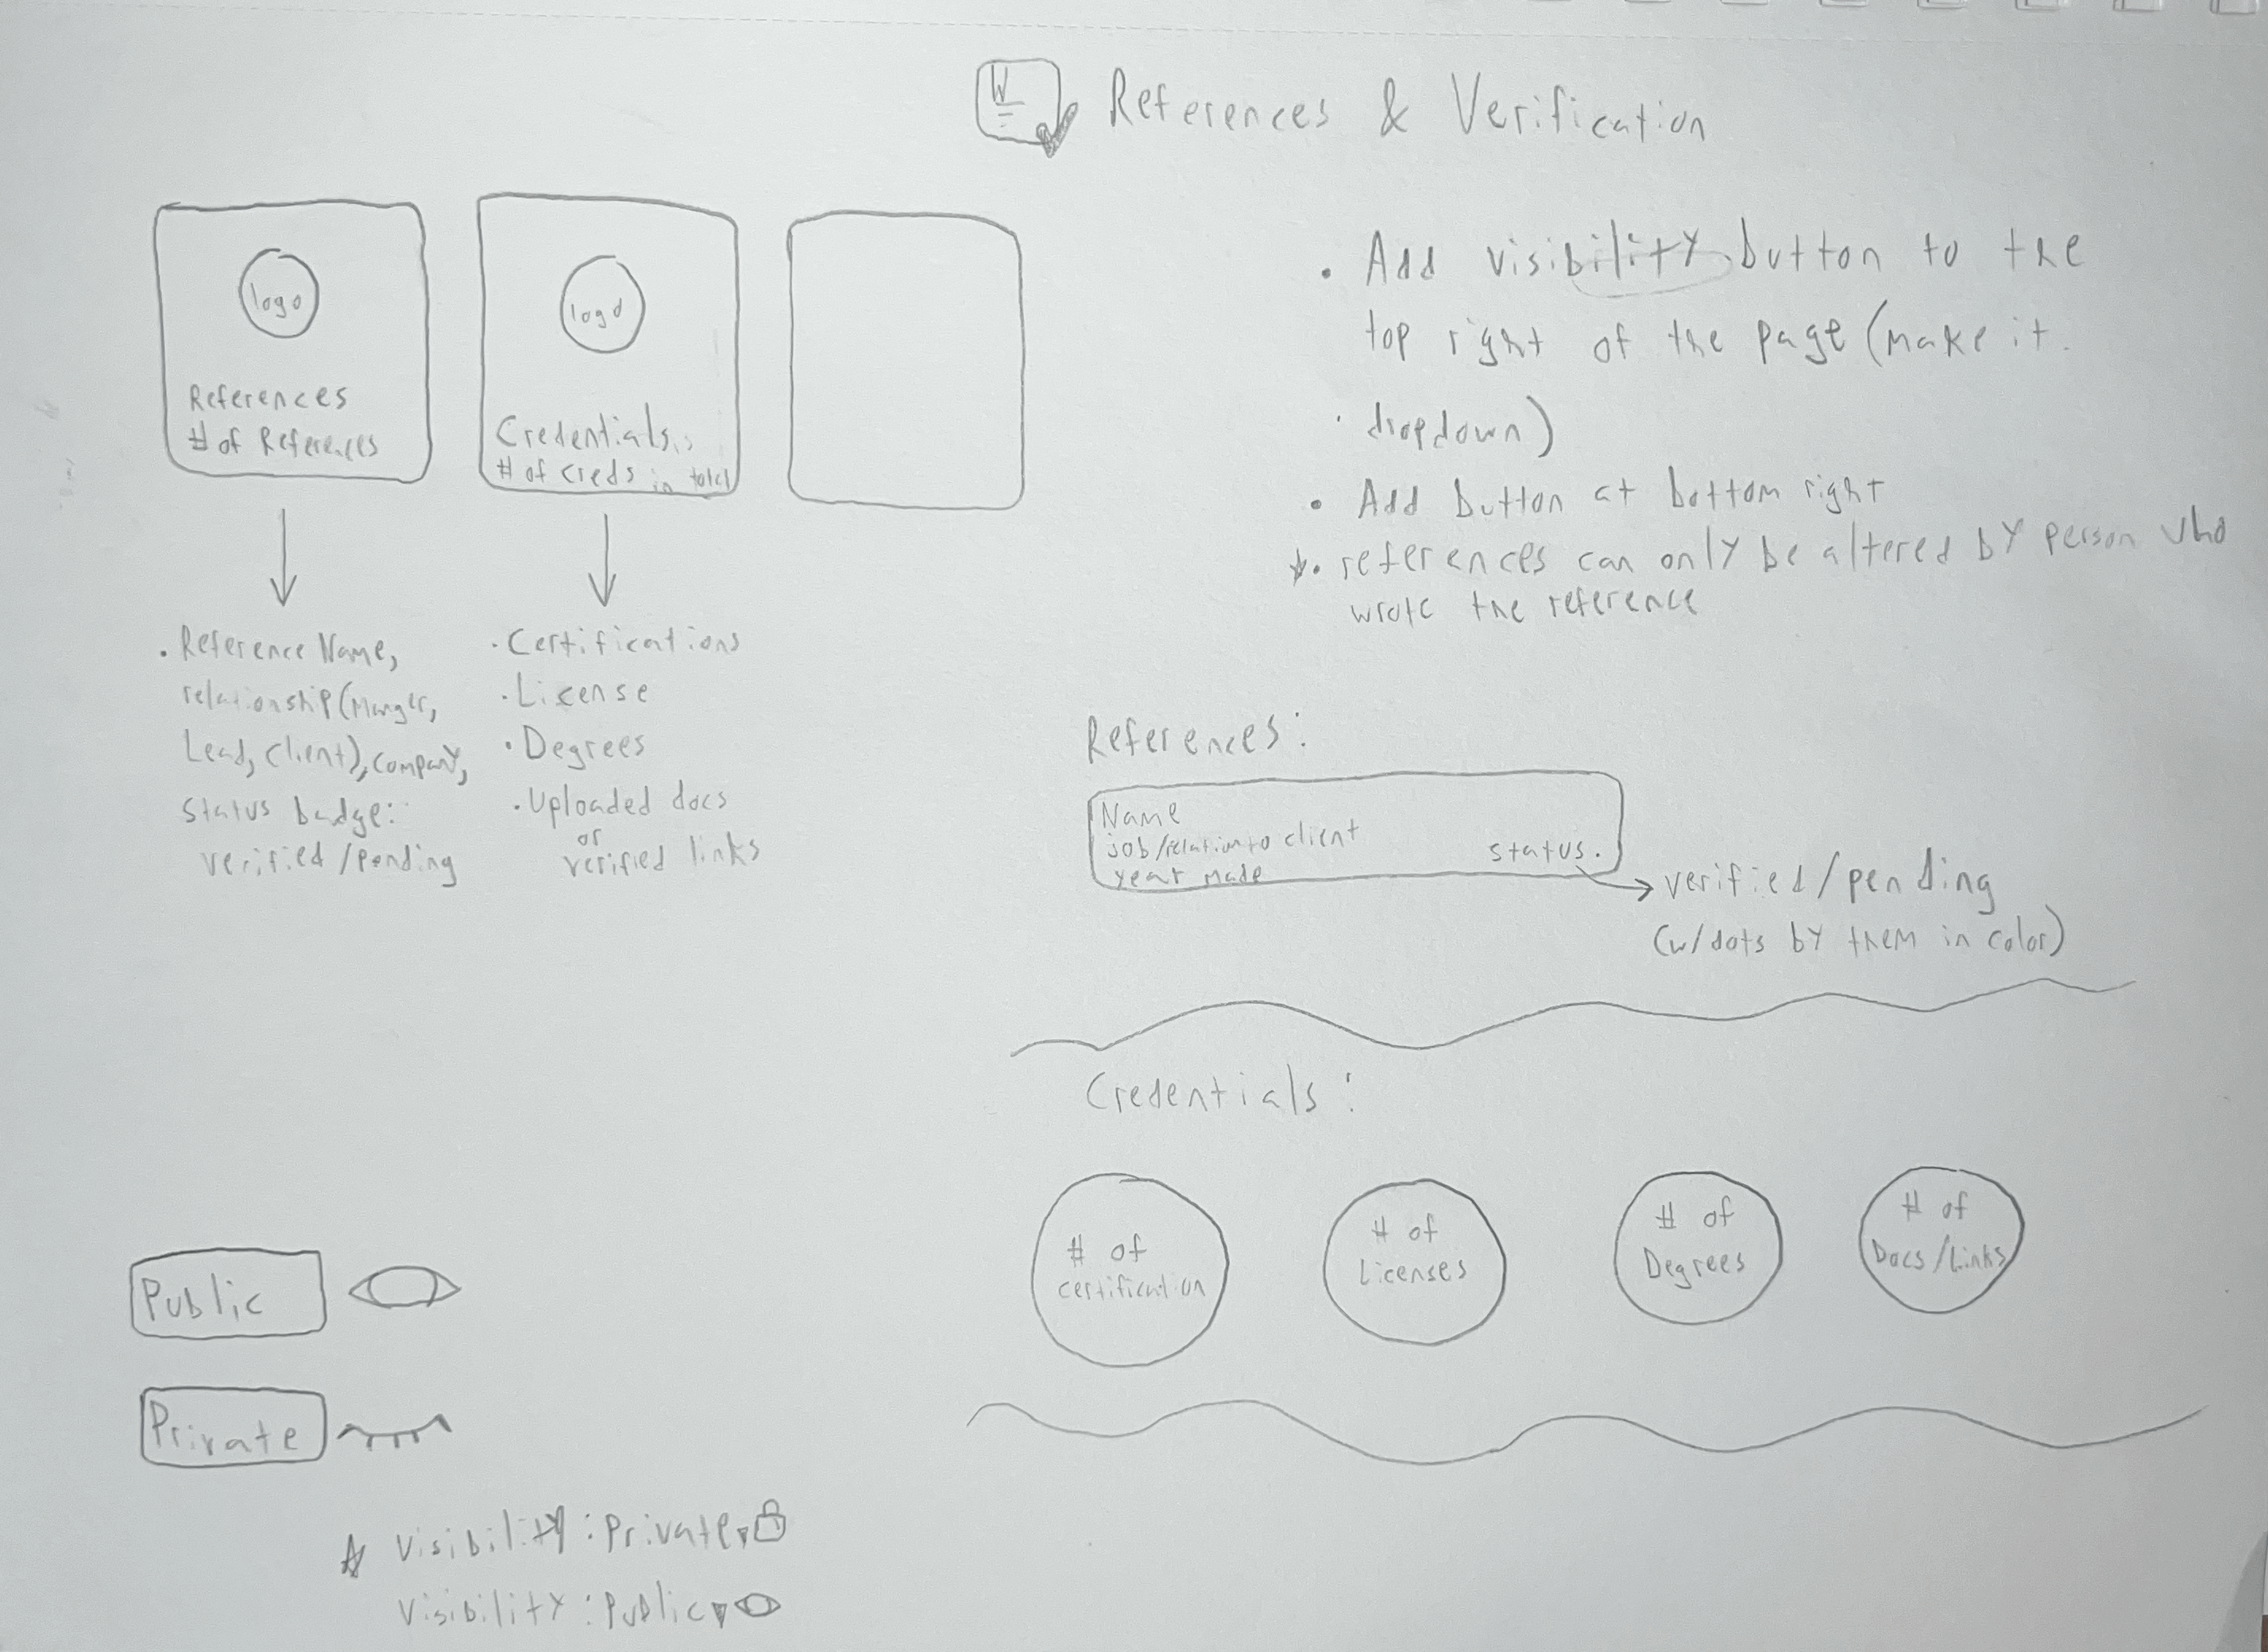 W
References & Verification
logo
References
# of References
logo
Credentials
# of creds in total
• Add visibility button to the
top right of the page (make it
dropdown)
• Add button at bottom right
• references can only be altered by person who
wrote the reference
• Reference Name,
relationship (Manger,
Lead, client), company,
status badge:
verified/pending
• Certifications
• License
• Degrees
• Uploaded docs
or
verified links
References:
Name
job/relation to client
year made
status.
verified/pending
(w/dots by them in color)
Credentials:
# of
certification
# of
Licenses
# of
Degrees
# of
Docs/Links
Public
Private
Visibility: Private
Visibility: Public